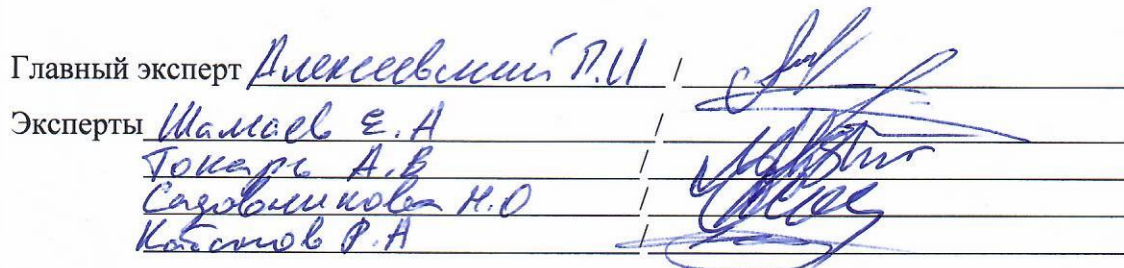 Главный эксперт Алексеевский П.И /
Эксперты Шамаев Е.А /
Токарь А.В /
Садовникова Н.О /
Р.А /